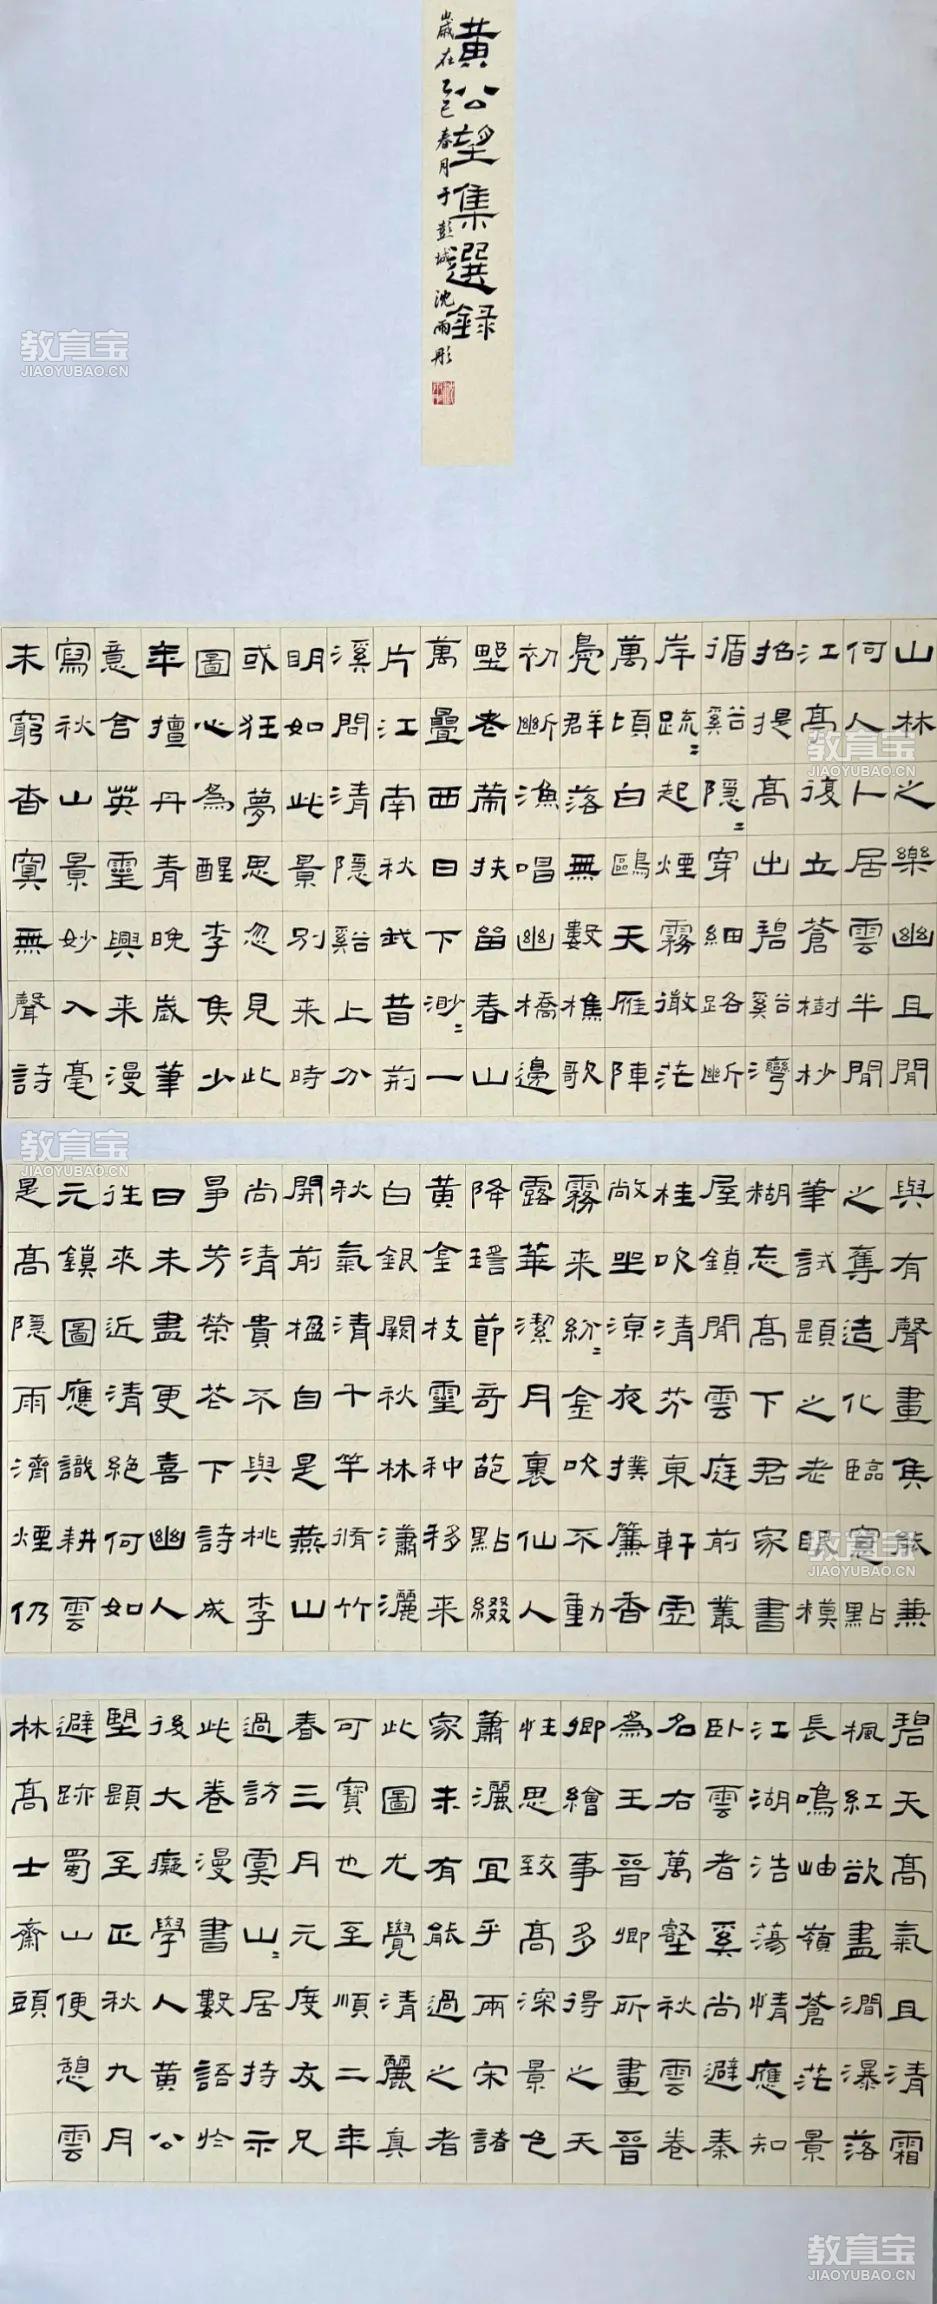 黄公望集選錄
歲在乙巳春月于彭城沈雨彤
山林之樂幽且閒
何人人居雲半閒
江高復立蒼樹杪
招提高出碧谿灣
循谿隱〻穿細路斷
岸疏〻起煙霧微茫
萬頃白鷗天雁陣
鳧群落無數樵歌
初斷漁唱幽橋邊
野老扶留春山
萬疊西日下渺〻一
片江南秋我昔荊
溪問清隱谿上分
明如此景別来時
或狂夢思忽見此
圖心為醒李侯少
年擅丹青晚歲筆
意含英靈興来漫
寫秋山景妙入毫
末窮杳冥無聲詩
與有聲畫侯能兼
之奪造化臨窻點
筆試題之老眼模
糊忘高下君家書
屋鎖閒雲庭前叢
桂吹清芬東軒虛
敞坐涼夜撲簾香
霧来紛〻金吹不動
露華潔月裏仙人
降瑶節奇葩點綴
黄金枝靈种移来
白銀闕秋林瀟灑
秋氣清千竿脩竹
開前楹自是燕山
尚清貴不與桃李
爭芳榮花下詩成
日未盡更喜幽人
往來近清絶何如
元鎮圖應識耕雲
是高隱雨濟煙仍
碧天高氣且清霜
楓紅欲盡澗瀑落
長鳴岫嶺蒼茫景
江湖浩蕩情應知
卧雲者奚尚避秦
名右萬壑秋雲卷
為王晉卿所畫晉
卿繪事多得之天
性思致高深景色
蕭灑宜乎兩宋諸
家未有能過之者
此圖尤覺清麗真
可寶也至順二年
春三月元度友兄
過訪虞山〻居持示
此卷漫書數語於
後大癡學人黄公
望題至正秋九月
避跡蜀山便憩雲
林高士齋頭
教育宝
JIAOYUBAO.CN
教育宝
JIAOYUBAO.CN
教育宝
JIAOYUBAO.CN
教育宝
JIAOYUBAO.CN
教育宝
JIAOYUBAO.CN